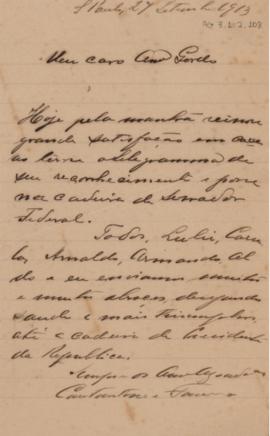 S. Paulo, 27 Setembro 1913
Meu caro Amo Gordo
Hoje pela manhã reinou
grande satisfação em casa
ao lermo o telegramma de
seu reconhecimento e posse
na cadeira de Senador
Federal.
Todos, Lulu, Carlos
Arnaldo, Armando
e eu enviamos muitos
e muitos abraços, desejando
saude e mais triumphos,
até a cadeira de Presidente
da Republica.
Sempre os